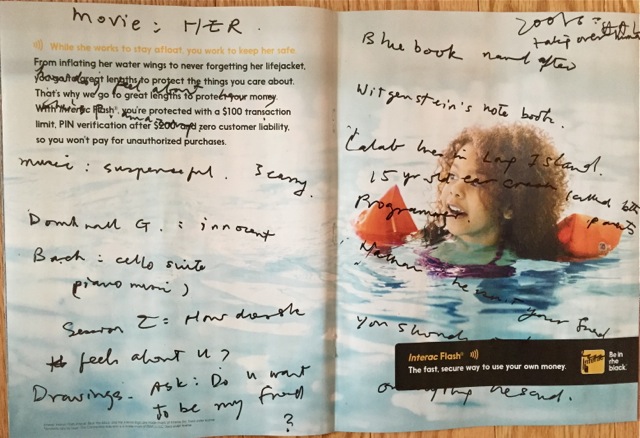 Movie: HER.
While she works to stay afloat, you work to keep her safe.
From inflating her water wings to never forgetting her lifejacket,
you go to great lengths to protect the things you care about.
That's why we go to great lengths to protect your money.
With Interac Flash®, you're protected with a $100 transaction
limit, PIN verification after $200 and zero customer liability,
so you won't pay for unauthorized purchases.
feel about
music: suspenseful. Scary.
Domhnall G. : innocent
Bach: cello suite
piano music)
Session 2: How does
feels about U?
Drawings. Ask: Do u want
to be my friend
?
Blue book named after
Witgenstein's note book.
Calab lives in Long Island.
15 yr old car crash killed both
parents
Programmer.
Nathan : he isn't your friend
You should
Interac Flash®
The fast, secure way to use your own money.
Interac
Be in
the
black.
he said.